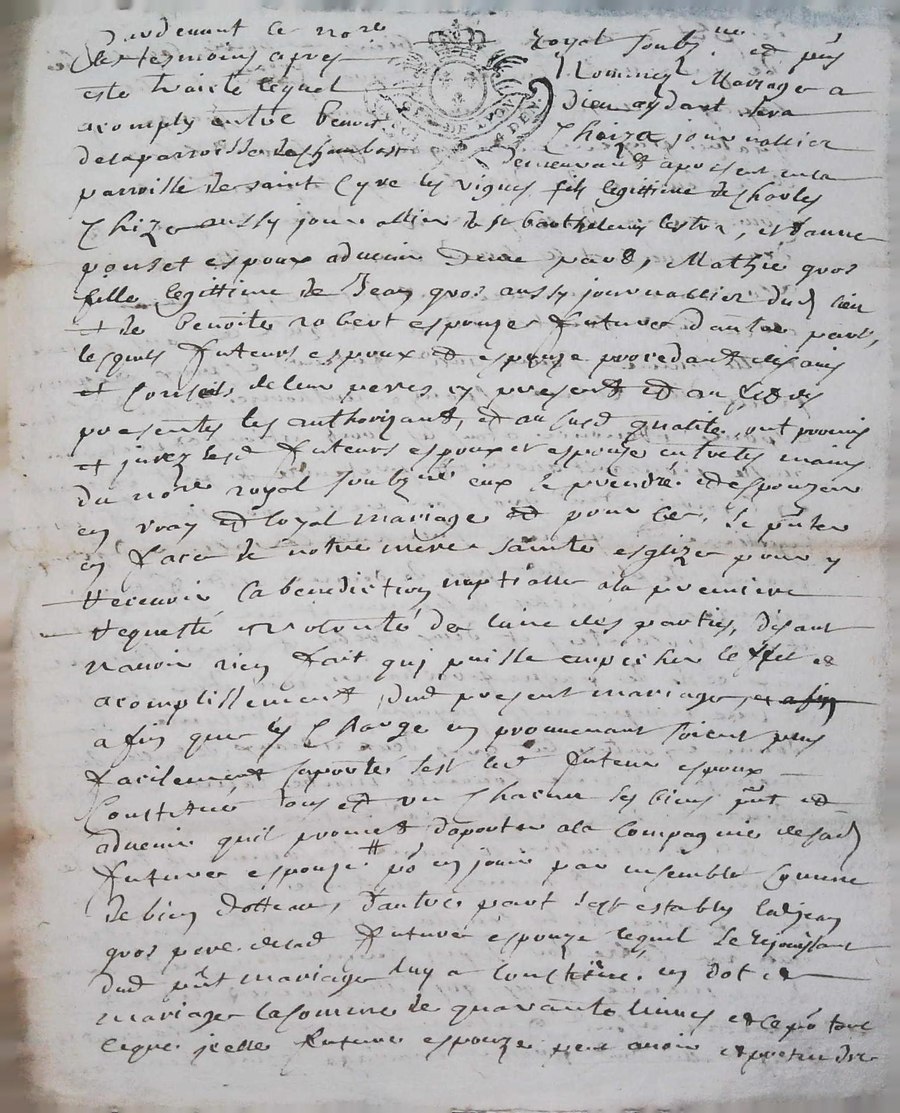 Pardevant le no.re royal soubz.ne et pn̄s
les tesmoins apres nommes Mariage a
este traicte lequel Dieu aydant sera
acomply entre benoit Chizat journallier
de la parroisse de Chambost demeurant apresent en la
parroisse de saint Cyre les vignes fils legittime de Charles
Chize aussy journallier de st barthelemy lestra, et danne
ponset espoux advenir dune part, Mathie gros
fille legittime de Jean gros aussy journallier dud lieu
et de benoite robert espouze future dautre part,
lesquels futeurs espoux et espouze procedant des avis
et Conseils de leur peres cy present et au
presentes les authorizant, et au susd qualité, ont promis
et jurez lesd futeurs espoux et espouze entre les mains
du no.re royal soubz.ne eux se prendre et espouzer
en vray et loyal mariage et pour ce, se pn̄ter
en face de notre mere sainte esglize pour y
recevoir la benediction nuptialle a la premiere
requeste et volonté de lune des parties, disant
navoir rien fait qui puisse empescher leffet et
acomplissement dud present mariage, et afin
afin que les Charge en provenant soient plus
facilement suporté sest led futeur espoux
Constitué tous et un Chacun ses biens pn̄t et
advenir quil promet daporter a la Compagnie de sad
future espouze # po en jouir par ensemble Comme
de bien dotteaux, dautre part sest estably led jean
gros pere de lad future espouze lequel se rejouissant
dud pn̄t mariage luy a Constitue en dot et
mariage la somme de quarante livres et ce po tout
ce que jcelle future espouze peut avoir et pretendre